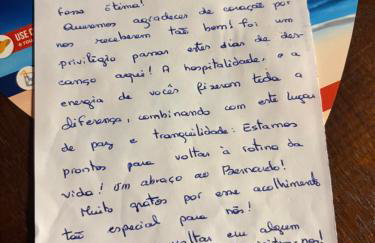 fosse ótima!
Queremos agradecer de coração por
nos receberem tão bem! foi um
privilégio passar estes dias de des-
canço aqui! A hospitalidade, e a
energia de vocês fizeram toda a
diferença, combinando com este lugar
de paz e tranquilidade. Estamos
prontos para voltar à rotina da
vida! Um abraço ao Bernardo!
Muito gratos por esse acolhimento
tão especial para nós!
voltar em algum
USE C